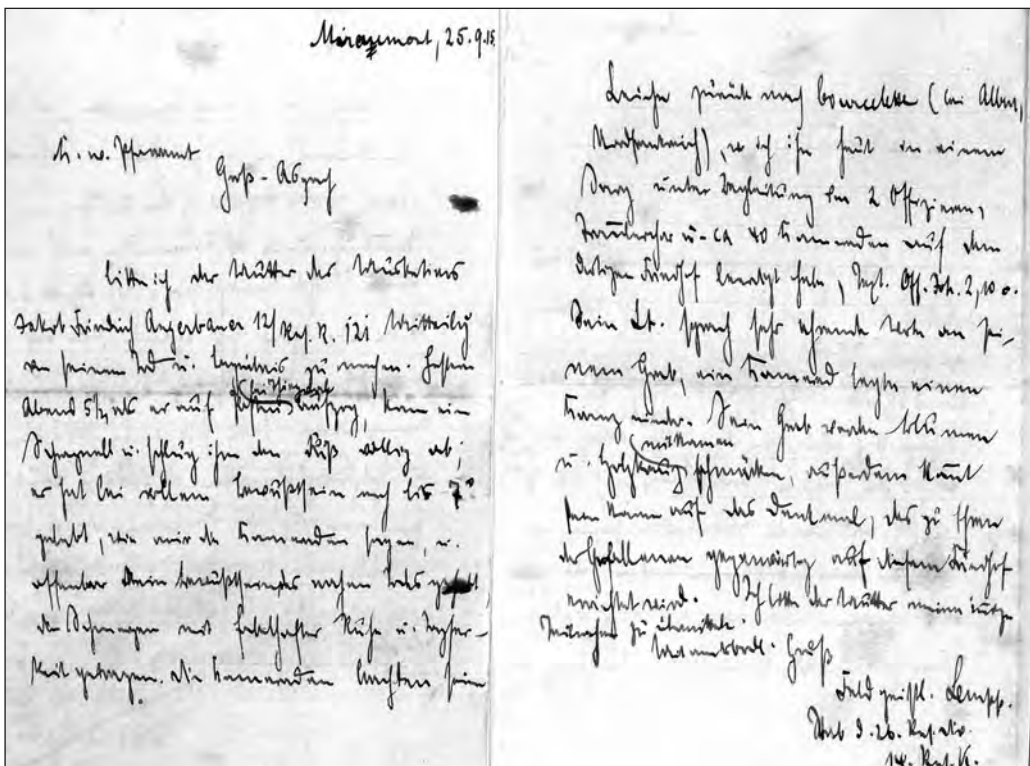 Miraumont, 25.9.15
K. w. Pfarramt
Groß-Aspach
bitte ich der Mutter des Musketiers
Jakob Friedrich Angerbauer 12/Res. R. 121 Mitteilg
von seinem Tod u. Begräbnis zu machen. Gestern
Abend 5½ als er auf Posten aufzog, kam ein
Schrapnell u. schlug ihm den Fuß völlig ab;
er hat bei vollem Bewußtsein noch bis 7°
gelebt, wie mir die Kameraden sagen, u.
offenbar beim Bewußtsein des nahen Todes
die Schmerzen mit fabelhafter Ruhe u. Tapfer-
keit getragen. Die Kameraden brachten seine
Leiche zurück nach Courcelette (bei Albert,
Nordfrankreich), wo ich ihn heut in einem
Sarg unter Begleitung von 2 Offizieren,
u. ca 40 Kameraden auf dem
dortigen Friedhof beerdigt habe, Text: Off. Joh. 2, 10 c.
Sein Lt. sprach sehr ehrende Worte an sei-
nem Grab, ein Kamerad legte einen
Kranz nieder. Sein Grab werden Blumen
u. Holzkreuz mit Namen schmücken, außerdem kommt
sein Name auf das Denkmal, das zu Ehren
der Gefallenen gegenwärtig auf diesem Friedhof
errichtet wird. Ich bitte der Mutter meine innige
Teilnahme zu übermitteln.
Mit amtsbrdl. Gruß
Feldgeistl. Lempp.
Stab d. 26. Res. Div.
14. Res. K.